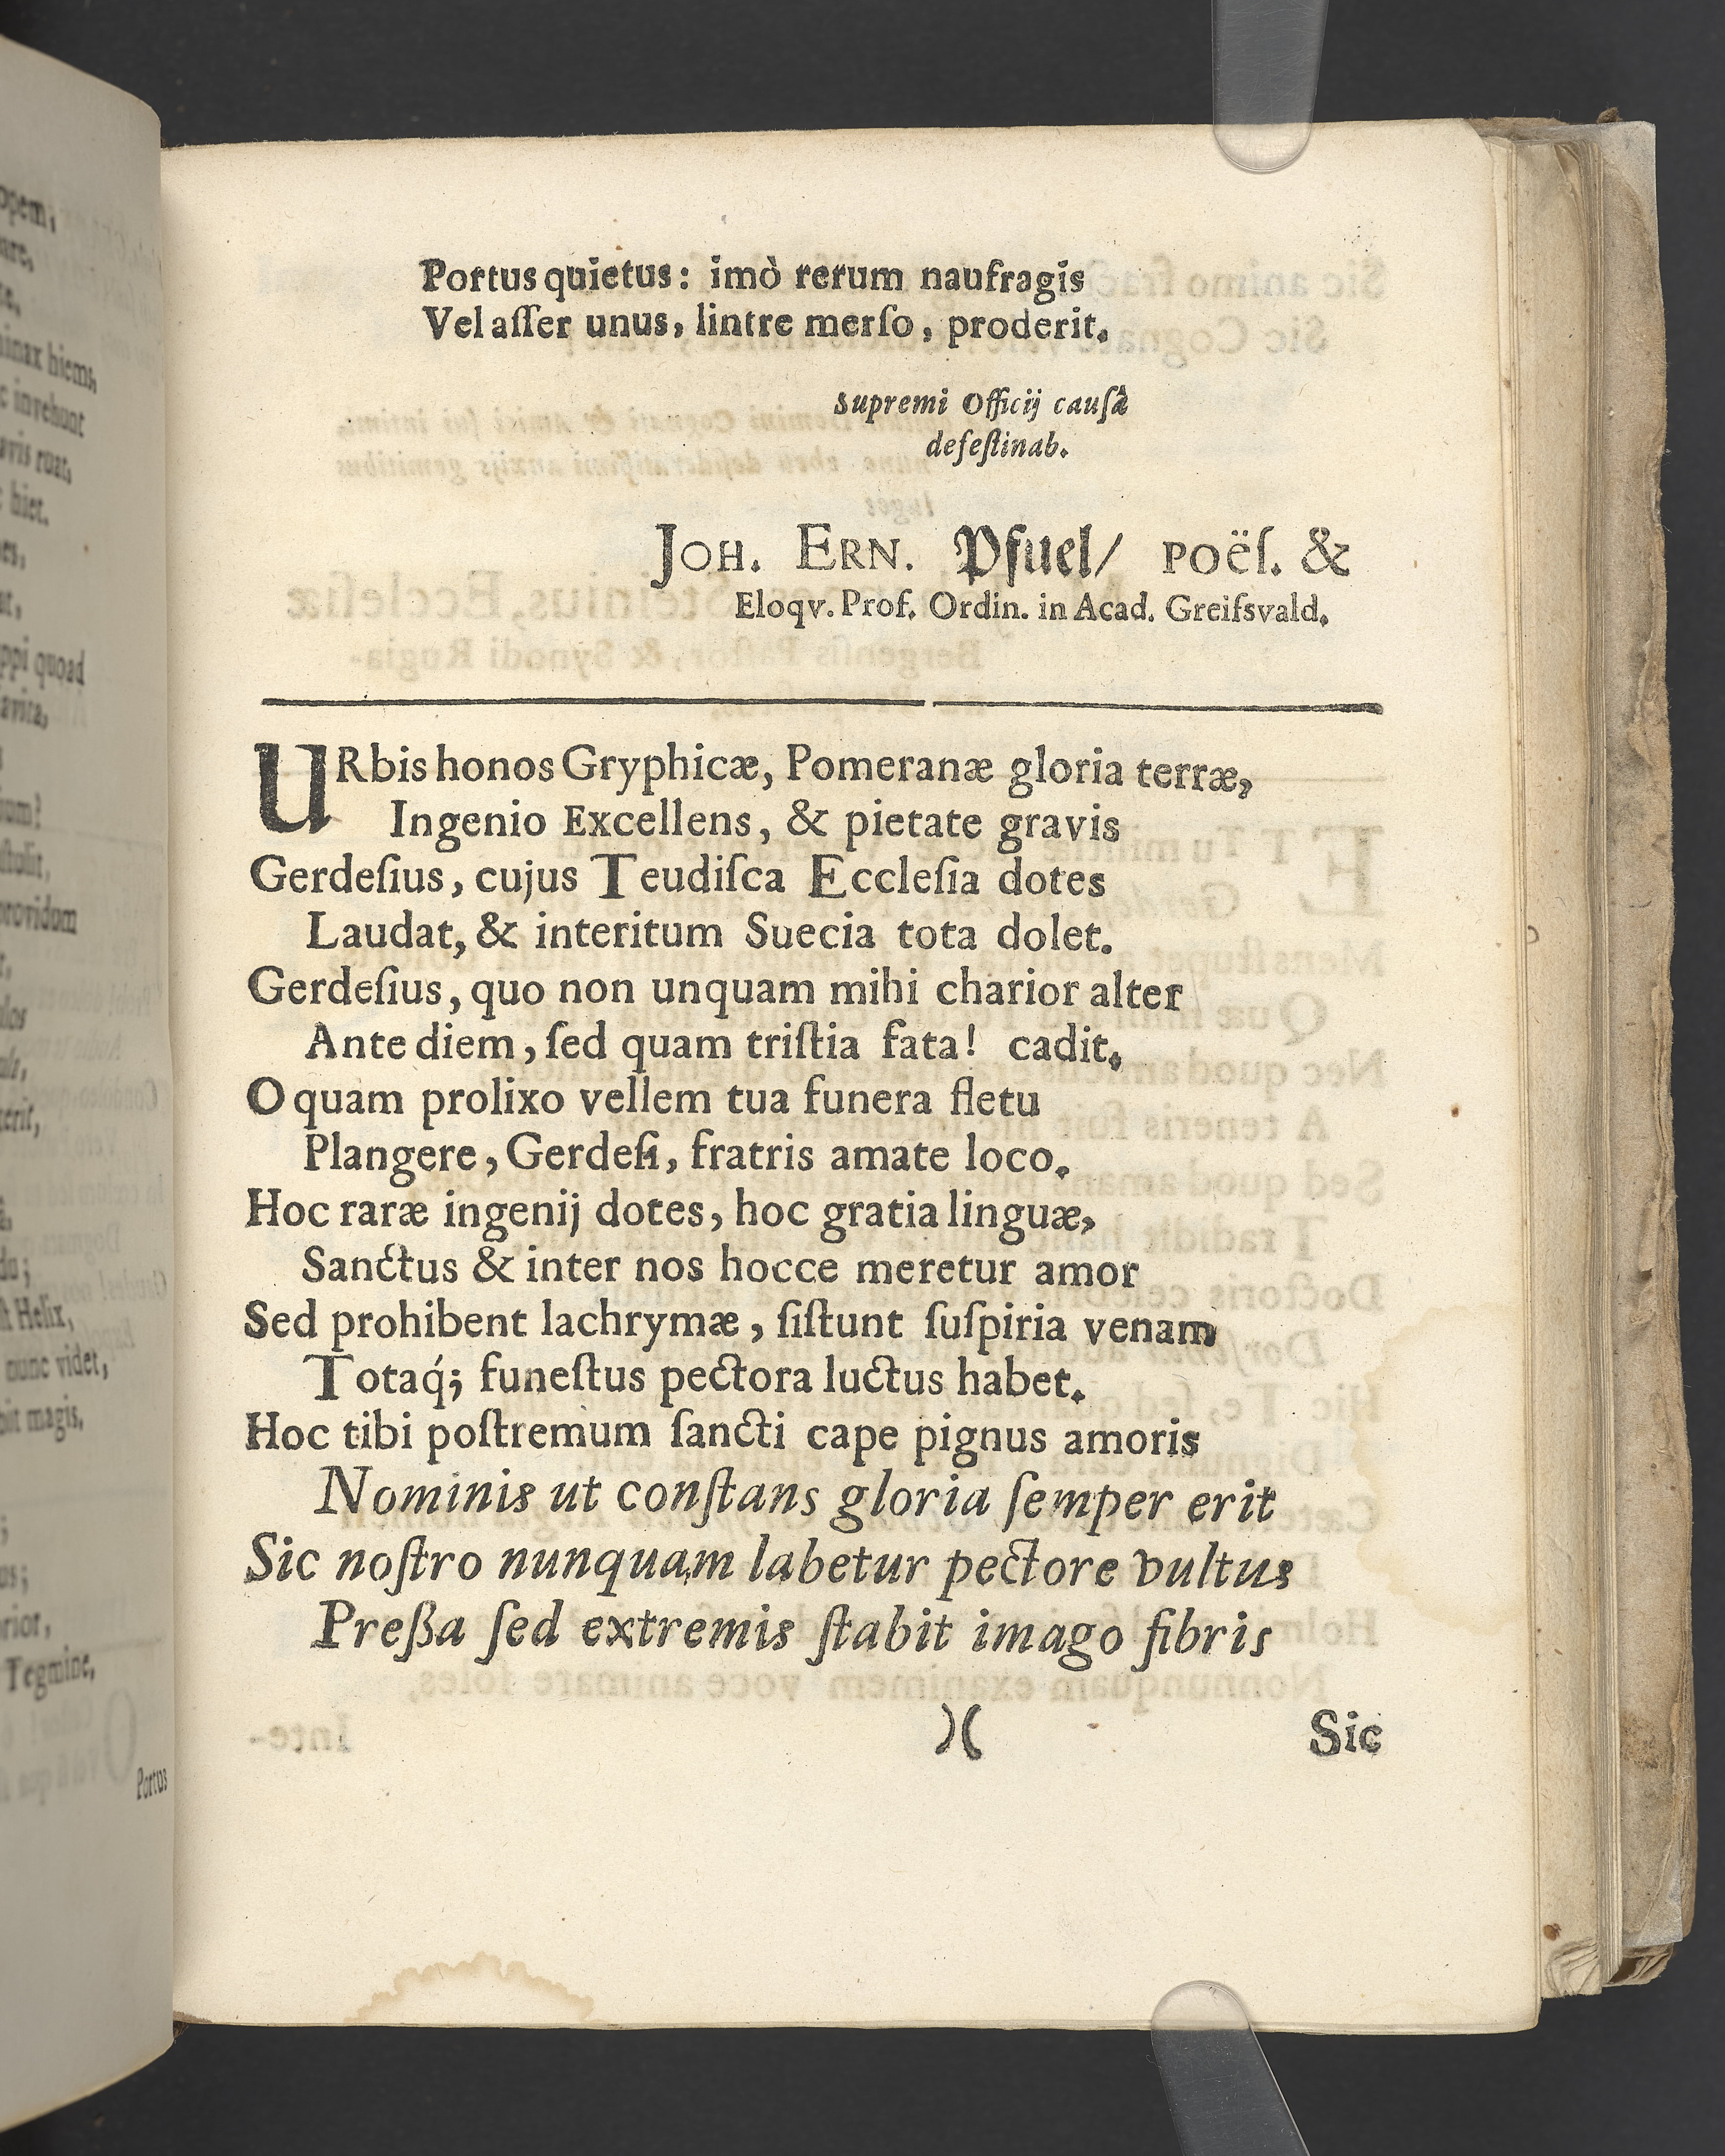 opem,
hiems,
invehunt
ruat,
hiet.
quoad
providam
Helix,
nunc videt,
magis,
Tegmine,
Portus
Portus quietus: imò rerum naufragis
Vel aſſer unus, lintre merſo, proderit.
Supremi Officij causâ
defeſtinab.
JOH. ERN. Pfuel/ POËſ. &
Eloqv. Prof. Ordin. in Acad. Greifsvald.
URbis honos Gryphicæ, Pomeranæ gloria terræ,
Ingenio Excellens, & pietate gravis
Gerdeſius, cujus Teudiſca Eccleſia dotes
Laudat, & interitum Suecia tota dolet.
Gerdeſius, quo non unquam mihi charior alter
Ante diem, ſed quam triſtia fata! cadit.
O quam prolixo vellem tua funera fletu
Plangere, Gerdeſi, fratris amate loco.
Hoc raræ ingenij dotes, hoc gratia linguæ,
Sanctus & inter nos hocce meretur amor
Sed prohibent lachrymæ, ſiſtunt ſuſpiria venam
Totaq́; funeſtus pectora luctus habet.
Hoc tibi poſtremum ſancti cape pignus amoris
Nominis ut conſtans gloria ſemper erit
Sic noſtro nunquam labetur pectore vultus
Preßa ſed extremis ſtabit imago fibris
)( Sic